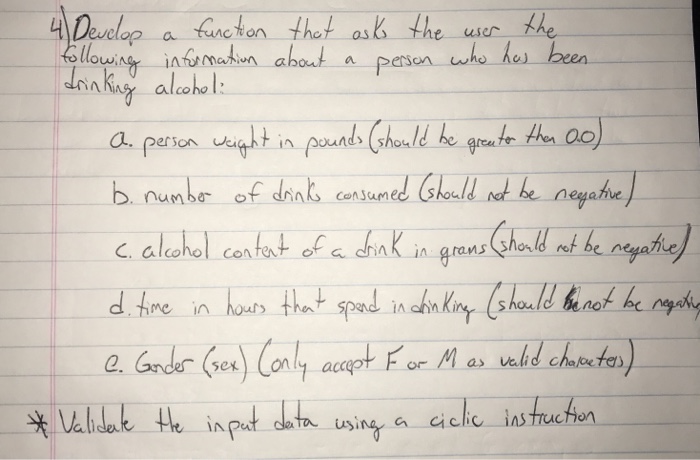 4) Develop a function that asks the user the
following information about a person who has been
drinking alcohol:
a. person weight in pounds (should be greater then 0.0)
b. number of drinks consumed (should not be negative)
c. alcohol content of a drink in grams (should not be negative)
d. time in hours that spend in drinking (should not be negativ
e. Gender (sex) (only accept F or M as valid characters)
* Validate the input data using a ciclic instruction